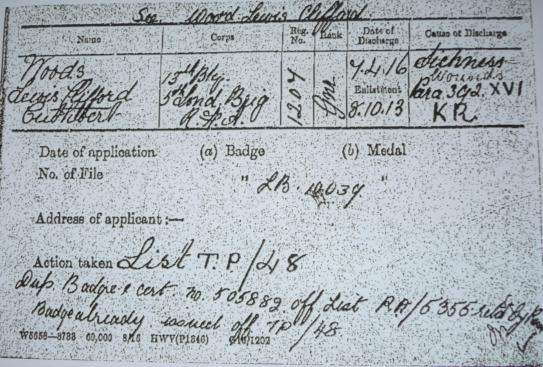 See Wood Lewis Clifford
Name Corps Reg. No. Rank Date of Discharge Cause of Discharge
Woods 13th Bty 1207 Gnr 7.4.16 Sickness
Lewis Clifford 5th Lond. Brig Enlistment Wounds
Cuthbert R.F.A. 8.10.13 Para 392. XVI
K.R.
Date of application (a) Badge (b) Medal
No. of File " LB. "
Address of applicant :—
Action taken List T.P/48
Dup. Badge & cert. no. 505882 off List RA/5355
Badge already issued off TP/48
60,000 8/16 HWV(P1346)